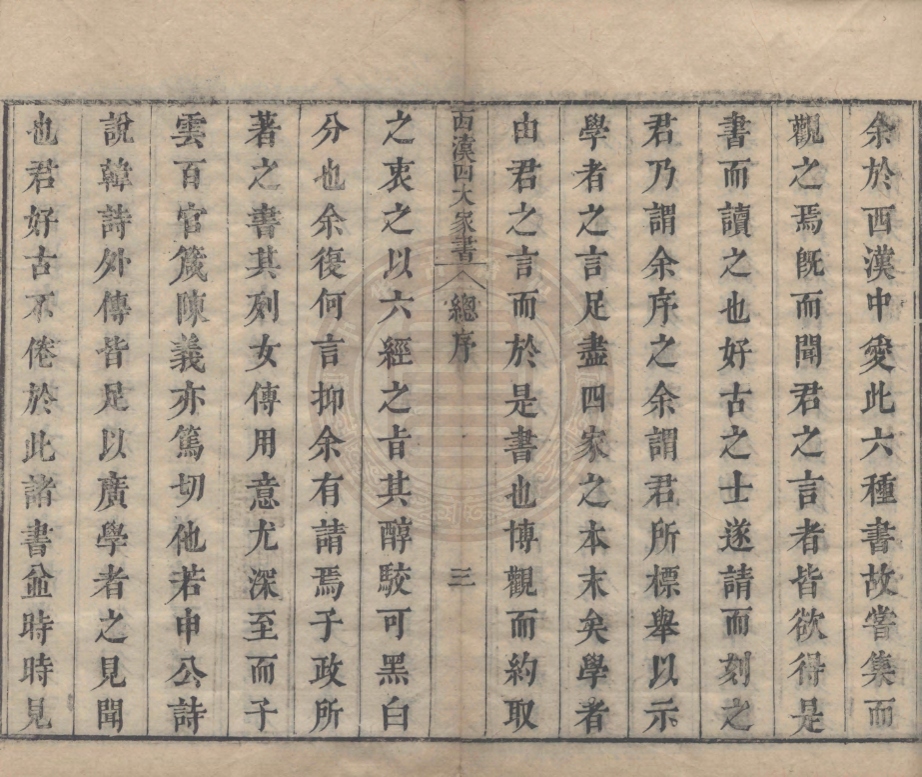 余於西漢中愛此六種書故嘗集而
觀之焉旣而聞君之言者皆欲得是
書而讀之也好古之士遂請而刻之
君乃謂余序之余謂君所標舉以示
學者之言足盡四家之本末矣學者
由君之言而於是書也博觀而約取
西漢四大家書 總序 三
之衷之以六經之㫖其醇駁可黑白
分也余復何言抑余有請焉子政所
著之書其列女傳用意尤深至而子
雲百官箴陳義亦篤切他若申公詩
說韓詩外傳皆足以廣學者之見聞
也君好古不倦於此諸書盒時時見